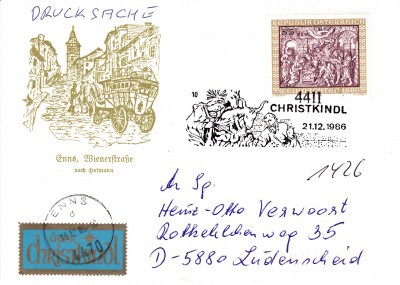 DRUCKSACHE
REPUBLIK ÖSTERREICH
4411
10
CHRISTKINDL
21.12.1986
Enns, Wienerstraße
nach Hofmann
1426
An Sg.
Heinz-Otto Verwoort
Rotkehlchenweg 35
D-5880 Lüdenscheid
ENNS
christkindl